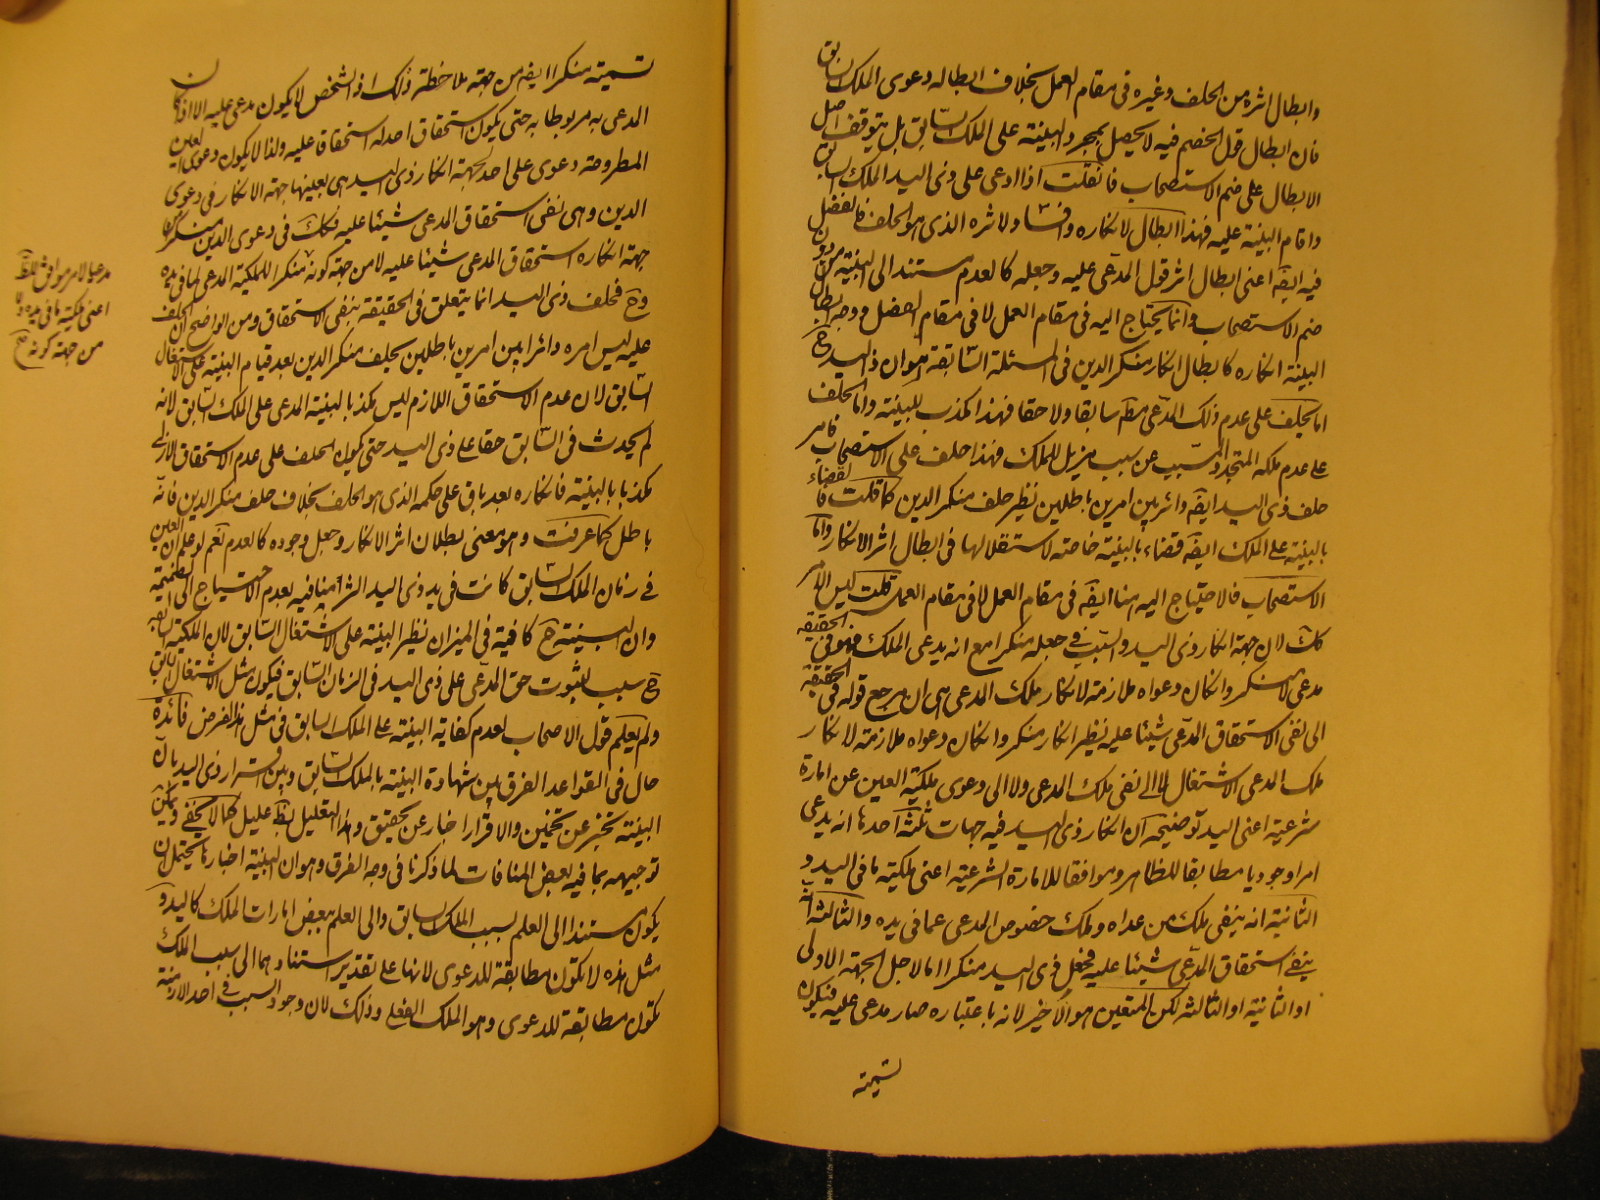 وابطال اثره من الحلف وغيره فى مقام العمل بخلاف ابطاله دعوى الملك السابق
فان ابطال قول الخصم فيه لا يحصل بمجرد البينة على الملك السابق بل يتوقف اصل
الابطال على ضم الاستصحاب فان قلت اذا ادعى على ذى اليد الملك السابق
واقام البينة عليه فهذا ابطال لانكاره وافساد لاثره الذى هو الحلف فالفصل
فيه ايضا اعنى ابطال اثر قول المدعى عليه وجعله كالعدم مستند الى البينة من دون
ضم الاستصحاب وانما يحتاج اليه فى مقام العمل لا فى مقام الفصل ووجه ابطال
البينة انكاره كابطال انكار منكر الدين فى المسئلة السابقة هو ان ذا اليد ح
اما يحلف على عدم ذلك المدعى مطلقا سابقا ولاحقا فهذا مكذب للبينة واما يحلف
على عدم ملكه المتجدد المسبب عن سبب مزيل للملك فهذا حلف على الاستصحاب فامر
حلف ذى اليد ايضا دائر بين امرين باطلين نظير حلف منكر الدين كما قلت فالقضاء
بالبينة على الملك ايضا قضاء بالبينة خاصة لاستقلالها فى ابطال اثر الانكار واما
الاستصحاب فالاحتياج اليه هنا ايضا فى مقام العمل لا فى مقام العمل قلت ليس الامر
كك لان جهة انكار ذى اليد والسبب فى جعله منكرا مع انه يدعى الملك فهو فى الحقيقة
مدعى لا منكر وان كان دعواه ملازمة لانكار ملك المدعى هى ان مرجع قوله فى الحقيقة
الى نفى الاستحقاق المدعى شيئا عليه نظير انكار منكر وان كان دعواه ملازمة لانكار
ملك المدعى الاشتغال لا الى نفى ملك المدعى ولا الى دعوى ملكية العين عن امارة
شرعية اعنى اليد توضيحه ان انكار ذى اليد فيه جهات ثلثة احدها انه يدعى
امرا وجوديا مطابقا للظاهر وموافقا للامارة الشرعية اعنى ملكية ما فى اليد و
الثانية انه ينفى ملك من عداه وملك خصوص المدعى عما فى يده والثالثة انه
ينفى استحقاق المدعى شيئا عليه فجعل ذى اليد منكرا اما لاجل الجهة الاولى
او الثانية او الثالثة لكن المتعين هو الاخير لانه باعتباره صار مدعى عليه فيكون
تسميته
تسميته منكرا ايضا من جهة ملاحظة ذلك اذ الشخص لا يكون مدعى عليه الا اذا كان
المدعى به مربوطا به حتى يكون استحقاق احد له استحقاقا عليه ولذا لا يكون دعوى العين
المطروحة دعوى على احد فجهة انكار ذى اليد هى بعينها جهة الانكار فى دعوى
الدين وهى نفى استحقاق المدعى شيئا عليه فكك فى دعوى الدين منكر من
جهة انكاره استحقاق المدعى شيئا عليه لا من جهة كونه منكرا لملكية المدعى لما فى يده
وح فحلف ذى اليد انما يتعلق فى الحقيقة بنفى الاستحقاق ومن الواضح ان الحلف
عليه ليس امره دائرا بين امرين باطلين كحلف منكر الدين بعد قيام البينة على الاشتغال
السابق لان عدم الاستحقاق اللازم ليس مكذبا لبينة المدعى على الملك السابق لانه
لم يحدث فى السابق حقا على ذى اليد حتى يكون الحلف على عدم الاستحقاق الازلى
مكذبا بالبينة فانكاره بعد باق على حكمه الذى هو الحلف بخلاف حلف منكر الدين فانه
باطل كما عرفت وهو معنى بطلان اثر الانكار وجعل وجوده كالعدم نعم لو علم ان العين
فى زمان الملك السابق كانت فى يد ذى اليد التزمنا فيه بعدم الاحتياج الى الضميمة
وان البينة ح كافية فى الميزان نظير البينة على الاشتغال السابق لان الملكية السابقة
ح سبب لثبوت حق المدعى على ذى اليد فى الزمان السابق فيكون مثل الاشتغال السابق
ولم يعلم قول الاصحاب لعدم كفاية البينة على الملك السابق فى مثل هذا الفرض فائدة
حال فى القواعد الفرق بين شهادة البينة بالملك السابق وبين اقرار ذى اليد بان
البينة تخبر عن تخمين والاقرار اخبار عن تحقيق وهذا التعليل بظ عليل كما لا يخفى ويمكن
توجيهه بما فيه بعض المنافات لما ذكرنا فى وجه الفرق وهو ان البينة اخبارها يحتمل ان
يكون مستندا الى العلم بسبب الملك السابق والى العلم ببعض امارات الملك كاليد و
مثل هذه لا يكون مطابقة للدعوى لانها على تقدير استنادهما الى سبب الملك
يكون مطابقة للدعوى وهو الملك الفعلى وذلك لان وجود السبب فى احد الازمنة
مدعيا لامر موافق للظ
اعنى ملكية ما فى يده لا
من جهة كونه ح